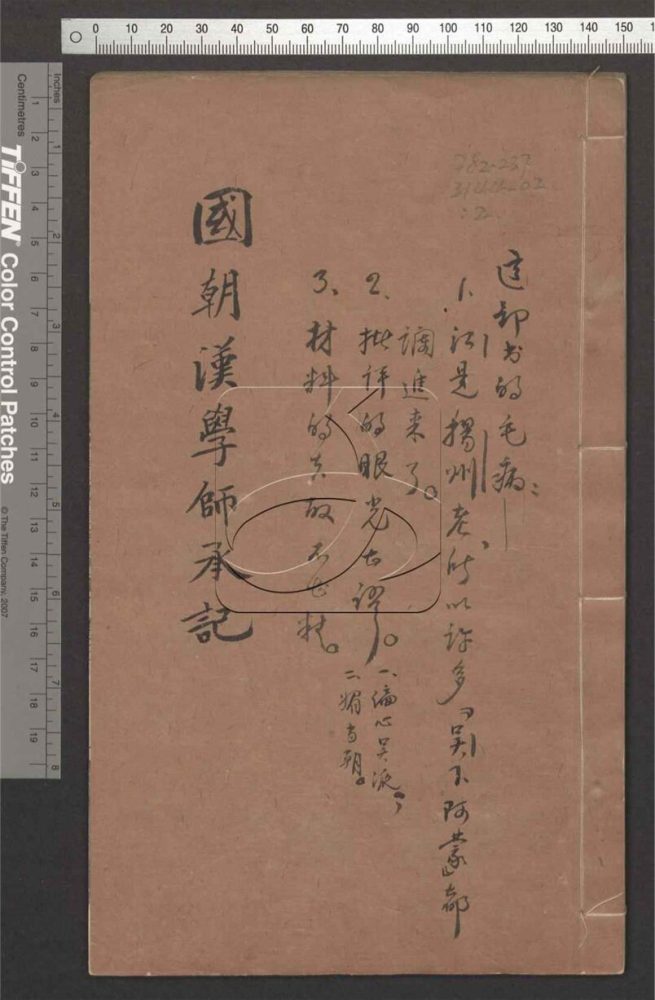 0 10 20 30 40 50 60 70 80 90 100 110 120 130 140 150
這部书的毛病：—
1、江是揚州老，所以許多「吳下阿蒙」都
調進来了。
2、批评的眼光大謬。
一、偏心吳派，
二、媚当朝。
3、材料的去取不甚精。
國朝漢學師承記
Inches 1 2 3 4 5 6 7 8
Centimetres 1 2 3 4 5 6 7 8 9 10 11 12 13 14 15 16 17 18 19
TIFFEN® Color Control Patches
© The Tiffen Company, 2007